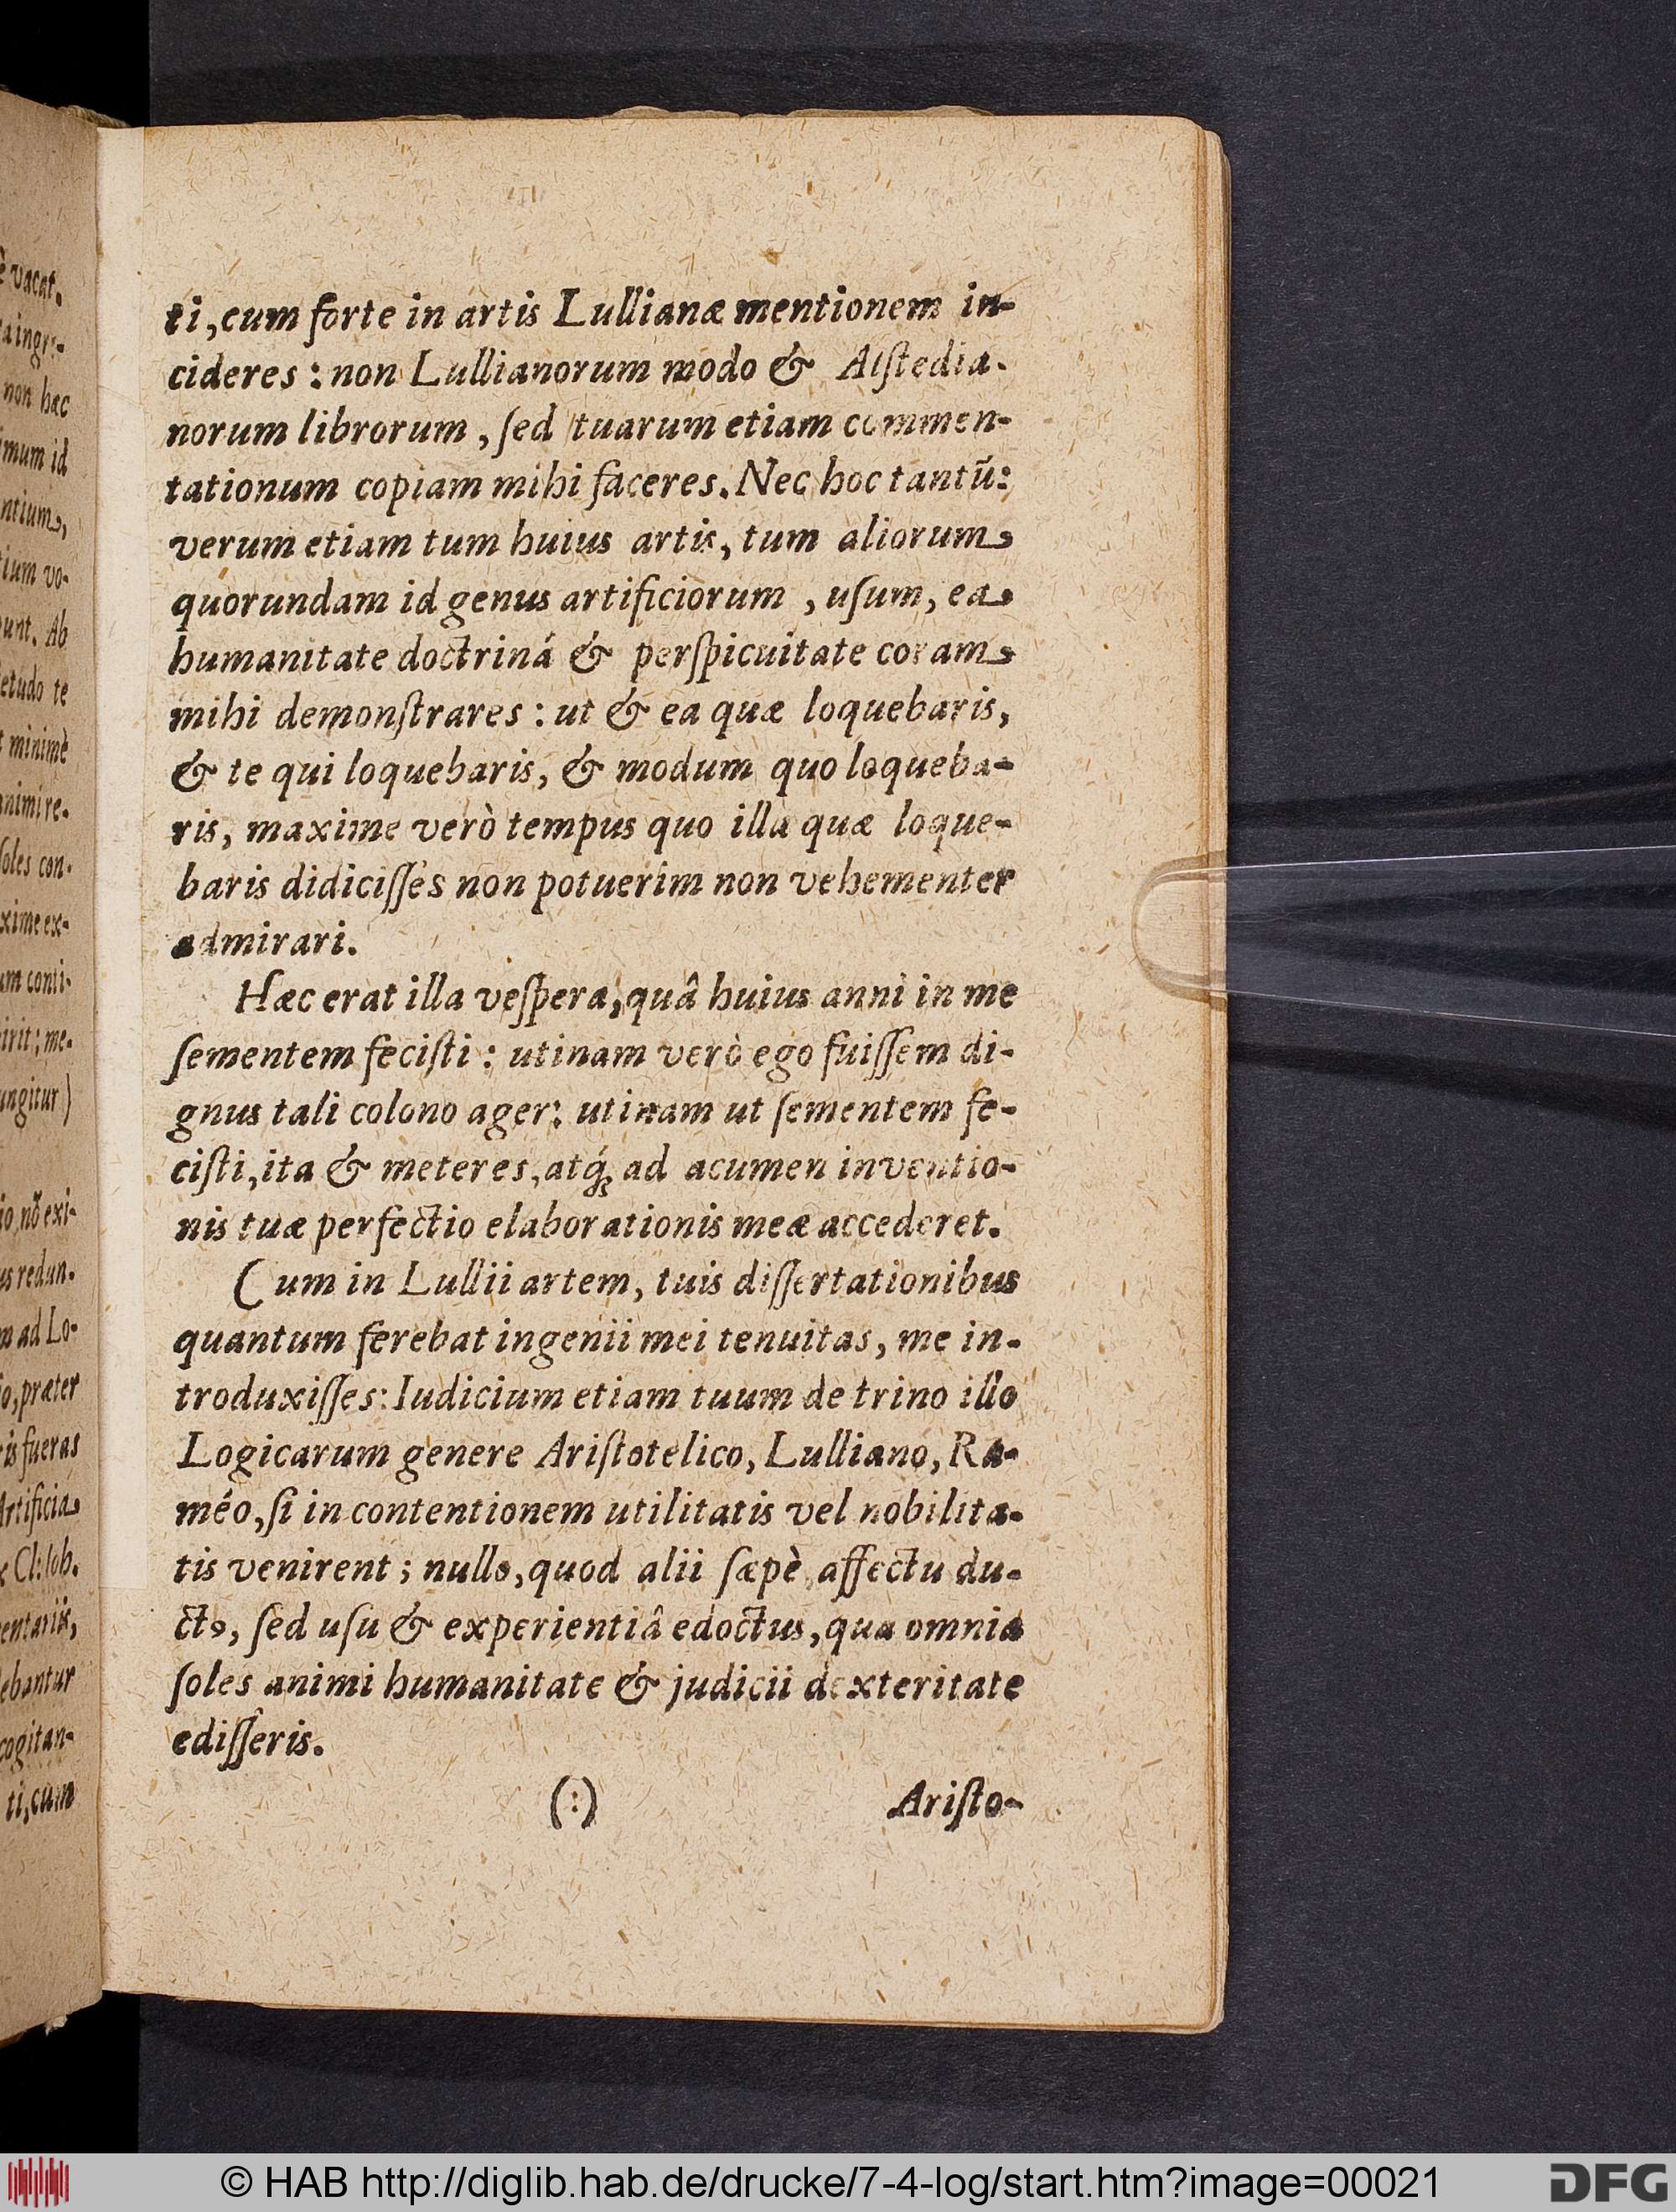 è vacat.
non hæc
imum id
ntium,
tium vo-
unt. Ab
etudo te
minimè
animi re-
soles con-
xime ex-
um conti-
irit; me-
ungitur)
io, nō exi-
us redun-
m ad Lo-
o, præter
is fueras
Artificia
Cl: Ioh.
entariis,
ebantur
cogitan-
ti, cum
ti, cum forte in artis Lullianæ mentionem in-
cideres : non Lullianorum modo & Alſtedia-
norum librorum, ſed tuarum etiam commen-
tationum copiam mihi faceres. Nec hoc tantū:
verum etiam tum huius artis, tum aliorum
quorundam id genus artificiorum, uſum, ea
humanitate doctriná & perſpicuitate coram
mihi demonſtrares : ut & ea quæ loquebaris,
& te qui loquebaris, & modum quo loqueba-
ris, maxime verò tempus quo illa quæ loque-
baris didiciſſes non potuerim non vehementer
admirari.
Hæc erat illa veſpera, quâ huius anni in me
ſementem feciſti : utinam verò ego fuiſſem di-
gnus tali colono ager: utinam ut ſementem fe-
ciſti, ita & meteres, atq́; ad acumen inventio-
nis tuæ perfectio elaborationis meæ accederet.
Cum in Lullii artem, tuis diſſertationibus
quantum ferebat ingenii mei tenuitas, me in-
troduxiſſes: Iudicium etiam tuum de trino illo
Logicarum genere Ariſtotelico, Lulliano, Ra-
méo, ſi in contentionem utilitatis vel nobilita-
tis venirent ; nullo, quod alii ſæpè affectu du-
cto, ſed uſu & experientiâ edoctus, qua omnia
ſoles animi humanitate & judicii dexteritate
ediſſeris.
(:)
Ariſto-
© HAB http://diglib.hab.de/drucke/7-4-log/start.htm?image=00021
DFG